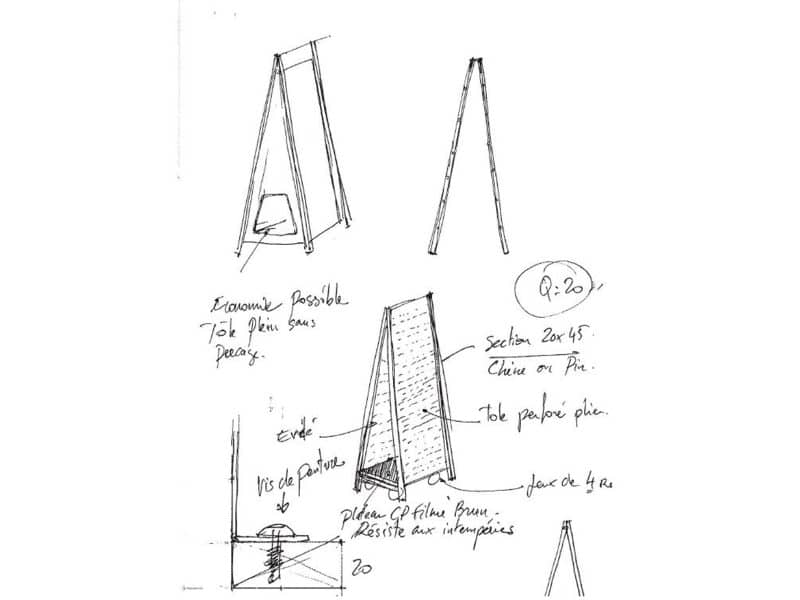 Q: 20
Economie possible
Tôle plein sans
percage.
Section 20x45.
Chêne ou Pin.
Tole perforé plier.
Evidé
Vis de penture
Jeux de 4 Ro
plateau CP filmé Brun.
Résiste aux intempéries
20